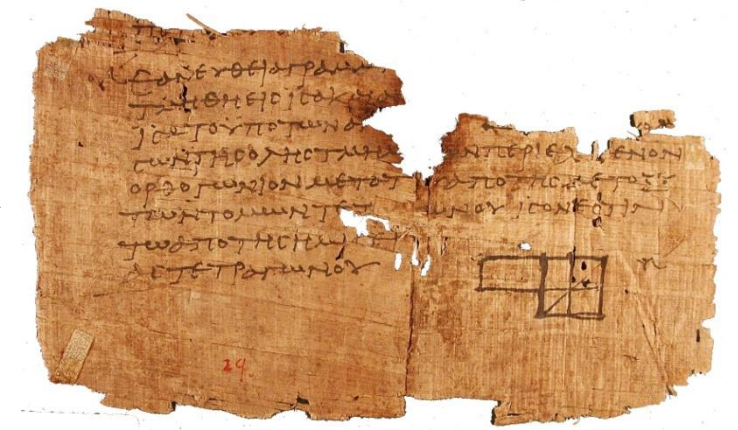 ΕΑΝ ΕΥΘΕΙΑ ΓΡΑΜΜ
ΤΜΗΘΗ ΕΙϹ ΙϹΑ ΚΑΙ Α
ΙϹΑ ΤΟ ΥΠΟ ΤΩΝ Α
ϹΩΝ ΤΗϹ ΟΛΗϹ ΤΜΗ ΩΝ ΠΕΡΙΕΧ ΜΕΝΟΝ
ΟΡΘΟΓΩΝΙΟΝ ΜΕΤΑ Τ Υ ΑΠΟ ΤΗϹ ΜΕΤΟΞΥ
ΤΩΝ ΤΟΜΩΝ ΤΕΤ ΩΝΟΥ ΙϹΟΝ ΕϹΤΙΝ
ΤΩ ΑΠΟ ΤΗϹ ΗΜΙϹΕΙ
ΑϹ ΤΕΤΡΑΓΩΝΟΥ
29